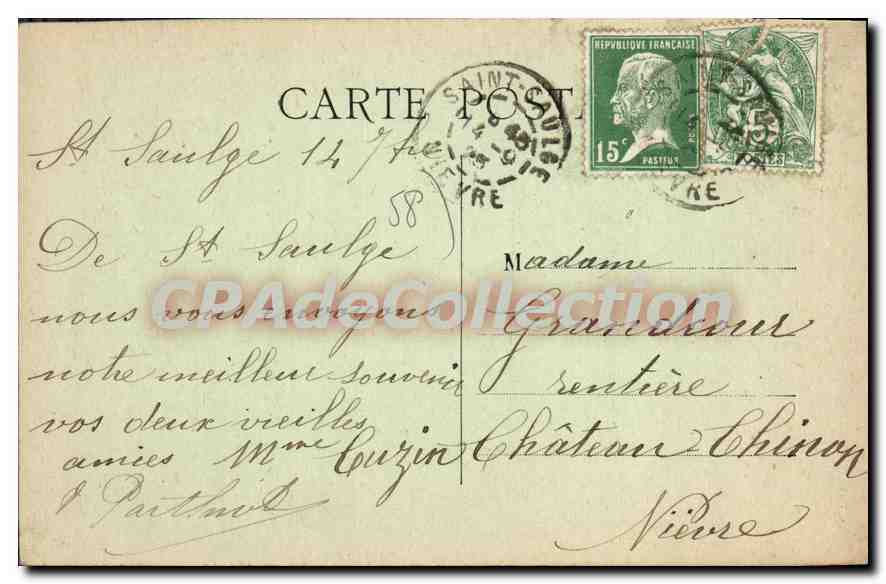 CARTE POST
SAINT-SAULGE
NIÈVRE
RÉPUBLIQUE FRANÇAISE
15c
PASTEUR
St Saulge 14
58
De St Saulge
nous vous envoyons
notre meilleur souvenir
vos deux vieilles
amies Mme Cuzin
CPAdeCollection
Madame
Grandkour
rentière
Château-Chinon
Nièvre